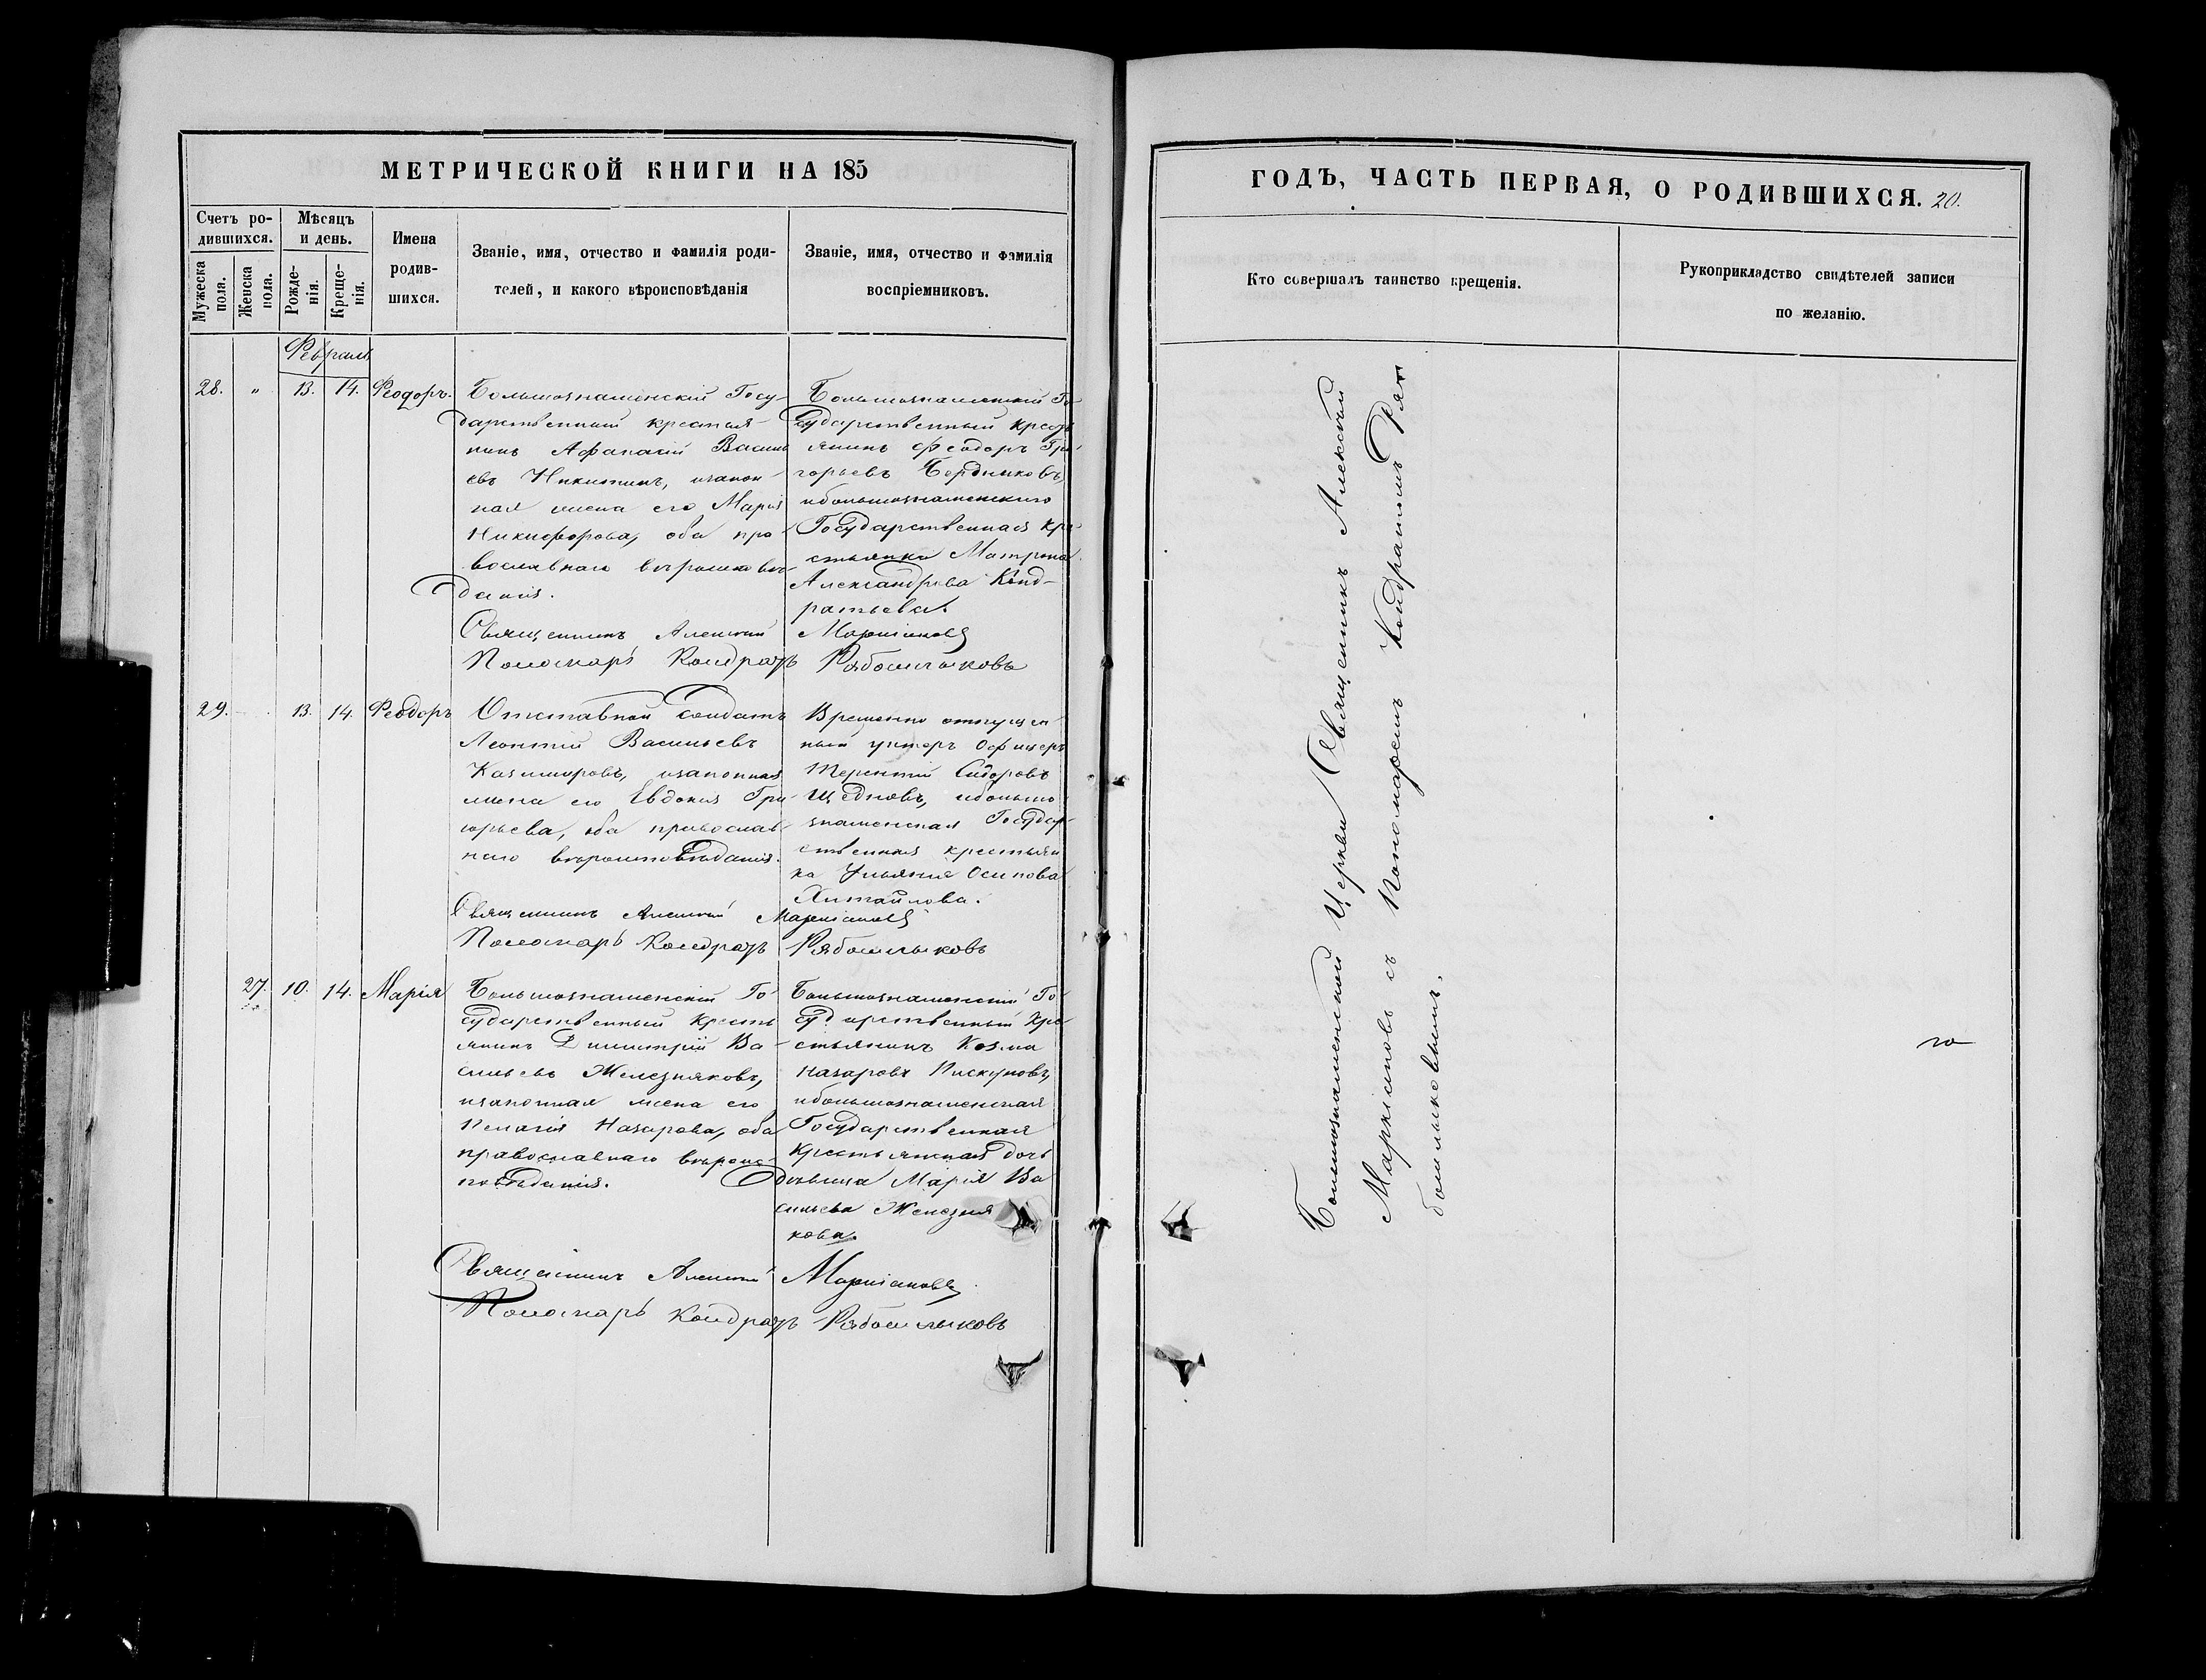 МЕТРИЧЕСКОЙ КНИГИ НА 185
Счетъ ро-
дившихся.
Мужеска
пола.
Женска
пола.
Мѣсяцъ
и день.
Рожде-
нія.
Креще-
нія.
Имена
родив-
шихся.
Званіе, имя, отчество и фамилія роди-
телей, и какого вѣроисповѣданія
Званіе, имя, отчество и фамилія
воспріемниковъ.
Февраль
28. " 13. 14. Ѳеодоръ.
Большознаменскій Госу-
дарственный крестья-
нинъ Афанасій Василь
евъ Никитинъ, изакон-
ная жена его Марія
Никифорова, оба пра-
вославнаго вѣроисповѣ-
данія.
Большознаменскій Го
сударственный кресть
янинъ Феодоръ Гри-
горьевъ Бердниковъ,
ибольшознаменского
Государственная кре-
стьянка Матрона
Александрова Конд-
ратьева.
Священникъ Алексій Маркіановъ
Пономарь Кондратъ Рябошлыковъ
29. 13. 14. Ѳеодоръ
Отставной Солдатъ
Леонтій Васильевъ
Казимировъ, изаконная
жена его Евдокія Гри-
горьева, оба православ-
наго вѣроисповѣданія.
Временно отпущен
ный унтеръ Офицеръ
Терентій Сидоровъ
Щедновъ, ибольшо
знаменская Государ-
ственная крестьян
ка Ульянія Осипова
Хитайлова.
Священникъ Алексій Маркіановъ
Пономарь Кондратъ Рябошлыковъ
27. 10. 14. Марія
Большознаменскій Го-
сударственный кресть
янинъ Димитрій Ва-
сильевъ Железняковъ,
изаконная жена его
Пелагія Назарова, оба
православнаго вѣроис-
повѣданія.
Большознаменскій Го-
сударственный кре
стьянинъ Козма
Назаровъ Пискуновъ,
ибольшознаменская
Государственная
крестьянская дочь
девица Марія Ва
сильева Железня
кова.
Священникъ Алексій Маркіановъ
Пономарь Кондратъ Рябошлыковъ
ГОДЪ, ЧАСТЬ ПЕРВАЯ, О РОДИВШИХСЯ. 20.
Кто совершалъ таинство крещенія.
Рукоприкладство свидѣтелей записи
по желанію.
Большознаменской Церкви Священникъ Алексій
Маркіановъ съ Пономаремъ Кондратомъ Ря
бошлыковымъ.